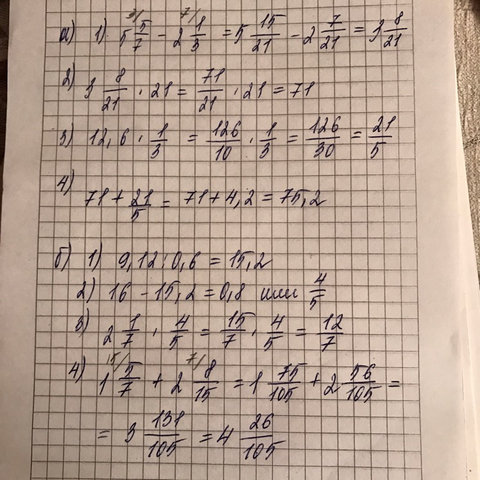 а) 1) 5 5/7 - 2 1/3 = 5 15/21 - 2 7/21 = 3 8/21
2) 3 8/21 · 21 = 71/21 · 21 = 71
3) 12,6 · 1/3 = 126/10 · 1/3 = 126/30 = 21/5
4) 71 + 21/5 = 71 + 4,2 = 75,2
б) 1) 9,12 : 0,6 = 15,2
2) 16 - 15,2 = 0,8 или 4/5
3) 2 1/7 · 4/5 = 15/7 · 4/5 = 12/7
4) 1 5/7 + 2 8/15 = 1 75/105 + 2 56/105 =
= 3 131/105 = 4 26/105